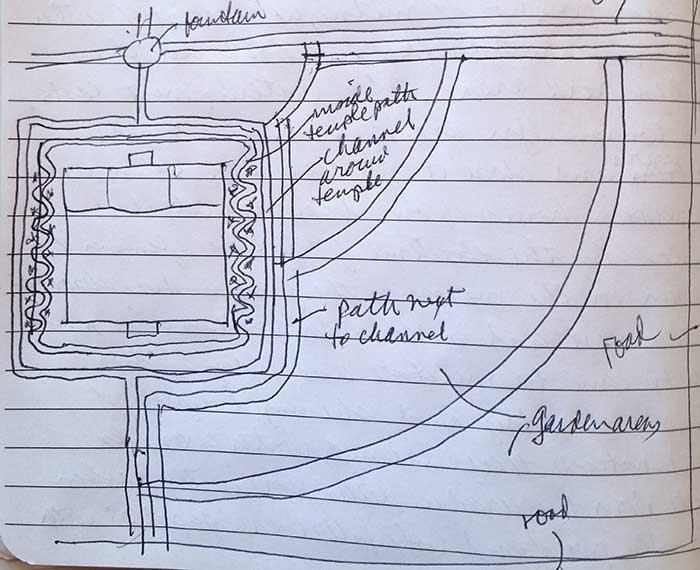 .H
fountain
inside
temple path
channel
around
temple
path next
to channel
road
garden areas
road